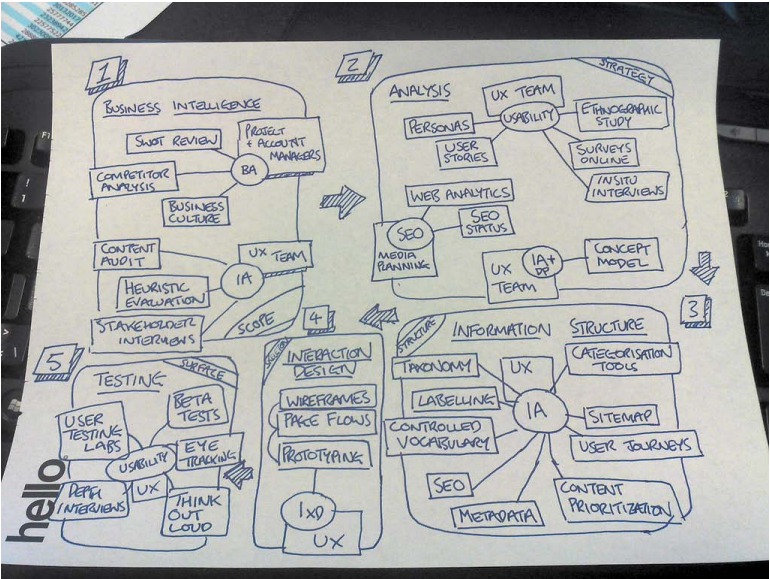 1
BUSINESS INTELLIGENCE
SWOT REVIEW
PROJECT
+ ACCOUNT
MANAGERS
COMPETITOR
ANALYSIS
BA
BUSINESS
CULTURE
CONTENT
AUDIT
UX TEAM
IA
HEURISTIC
EVALUATION
STAKEHOLDER
INTERVIEWS
SCOPE
2
STRATEGY
ANALYSIS
UX TEAM
USABILITY
PERSONAS
USER
STORIES
ETHNOGRAPHIC
STUDY
SURVEYS
ONLINE
INSITU
INTERVIEWS
WEB ANALYTICS
SEO
STATUS
SEO
MEDIA
PLANNING
UX
TEAM
IA+
CONCEPT
MODEL
3
STRUCTURE
INFORMATION STRUCTURE
TAXONOMY
UX
CATEGORISATION
TOOLS
LABELLING
IA
SITEMAP
CONTROLLED
VOCABULARY
USER JOURNEYS
SEO
METADATA
CONTENT
PRIORITIZATION
4
INTERACTION
DESIGN
WIREFRAMES
PAGE FLOWS
PROTOTYPING
IxD
UX
5
SURFACE
TESTING
BETA
TESTS
USER
TESTING
LABS
USABILITY
EYE
TRACKING
DEPTH
INTERVIEWS
UX
THINK
OUT
LOUD
hello.